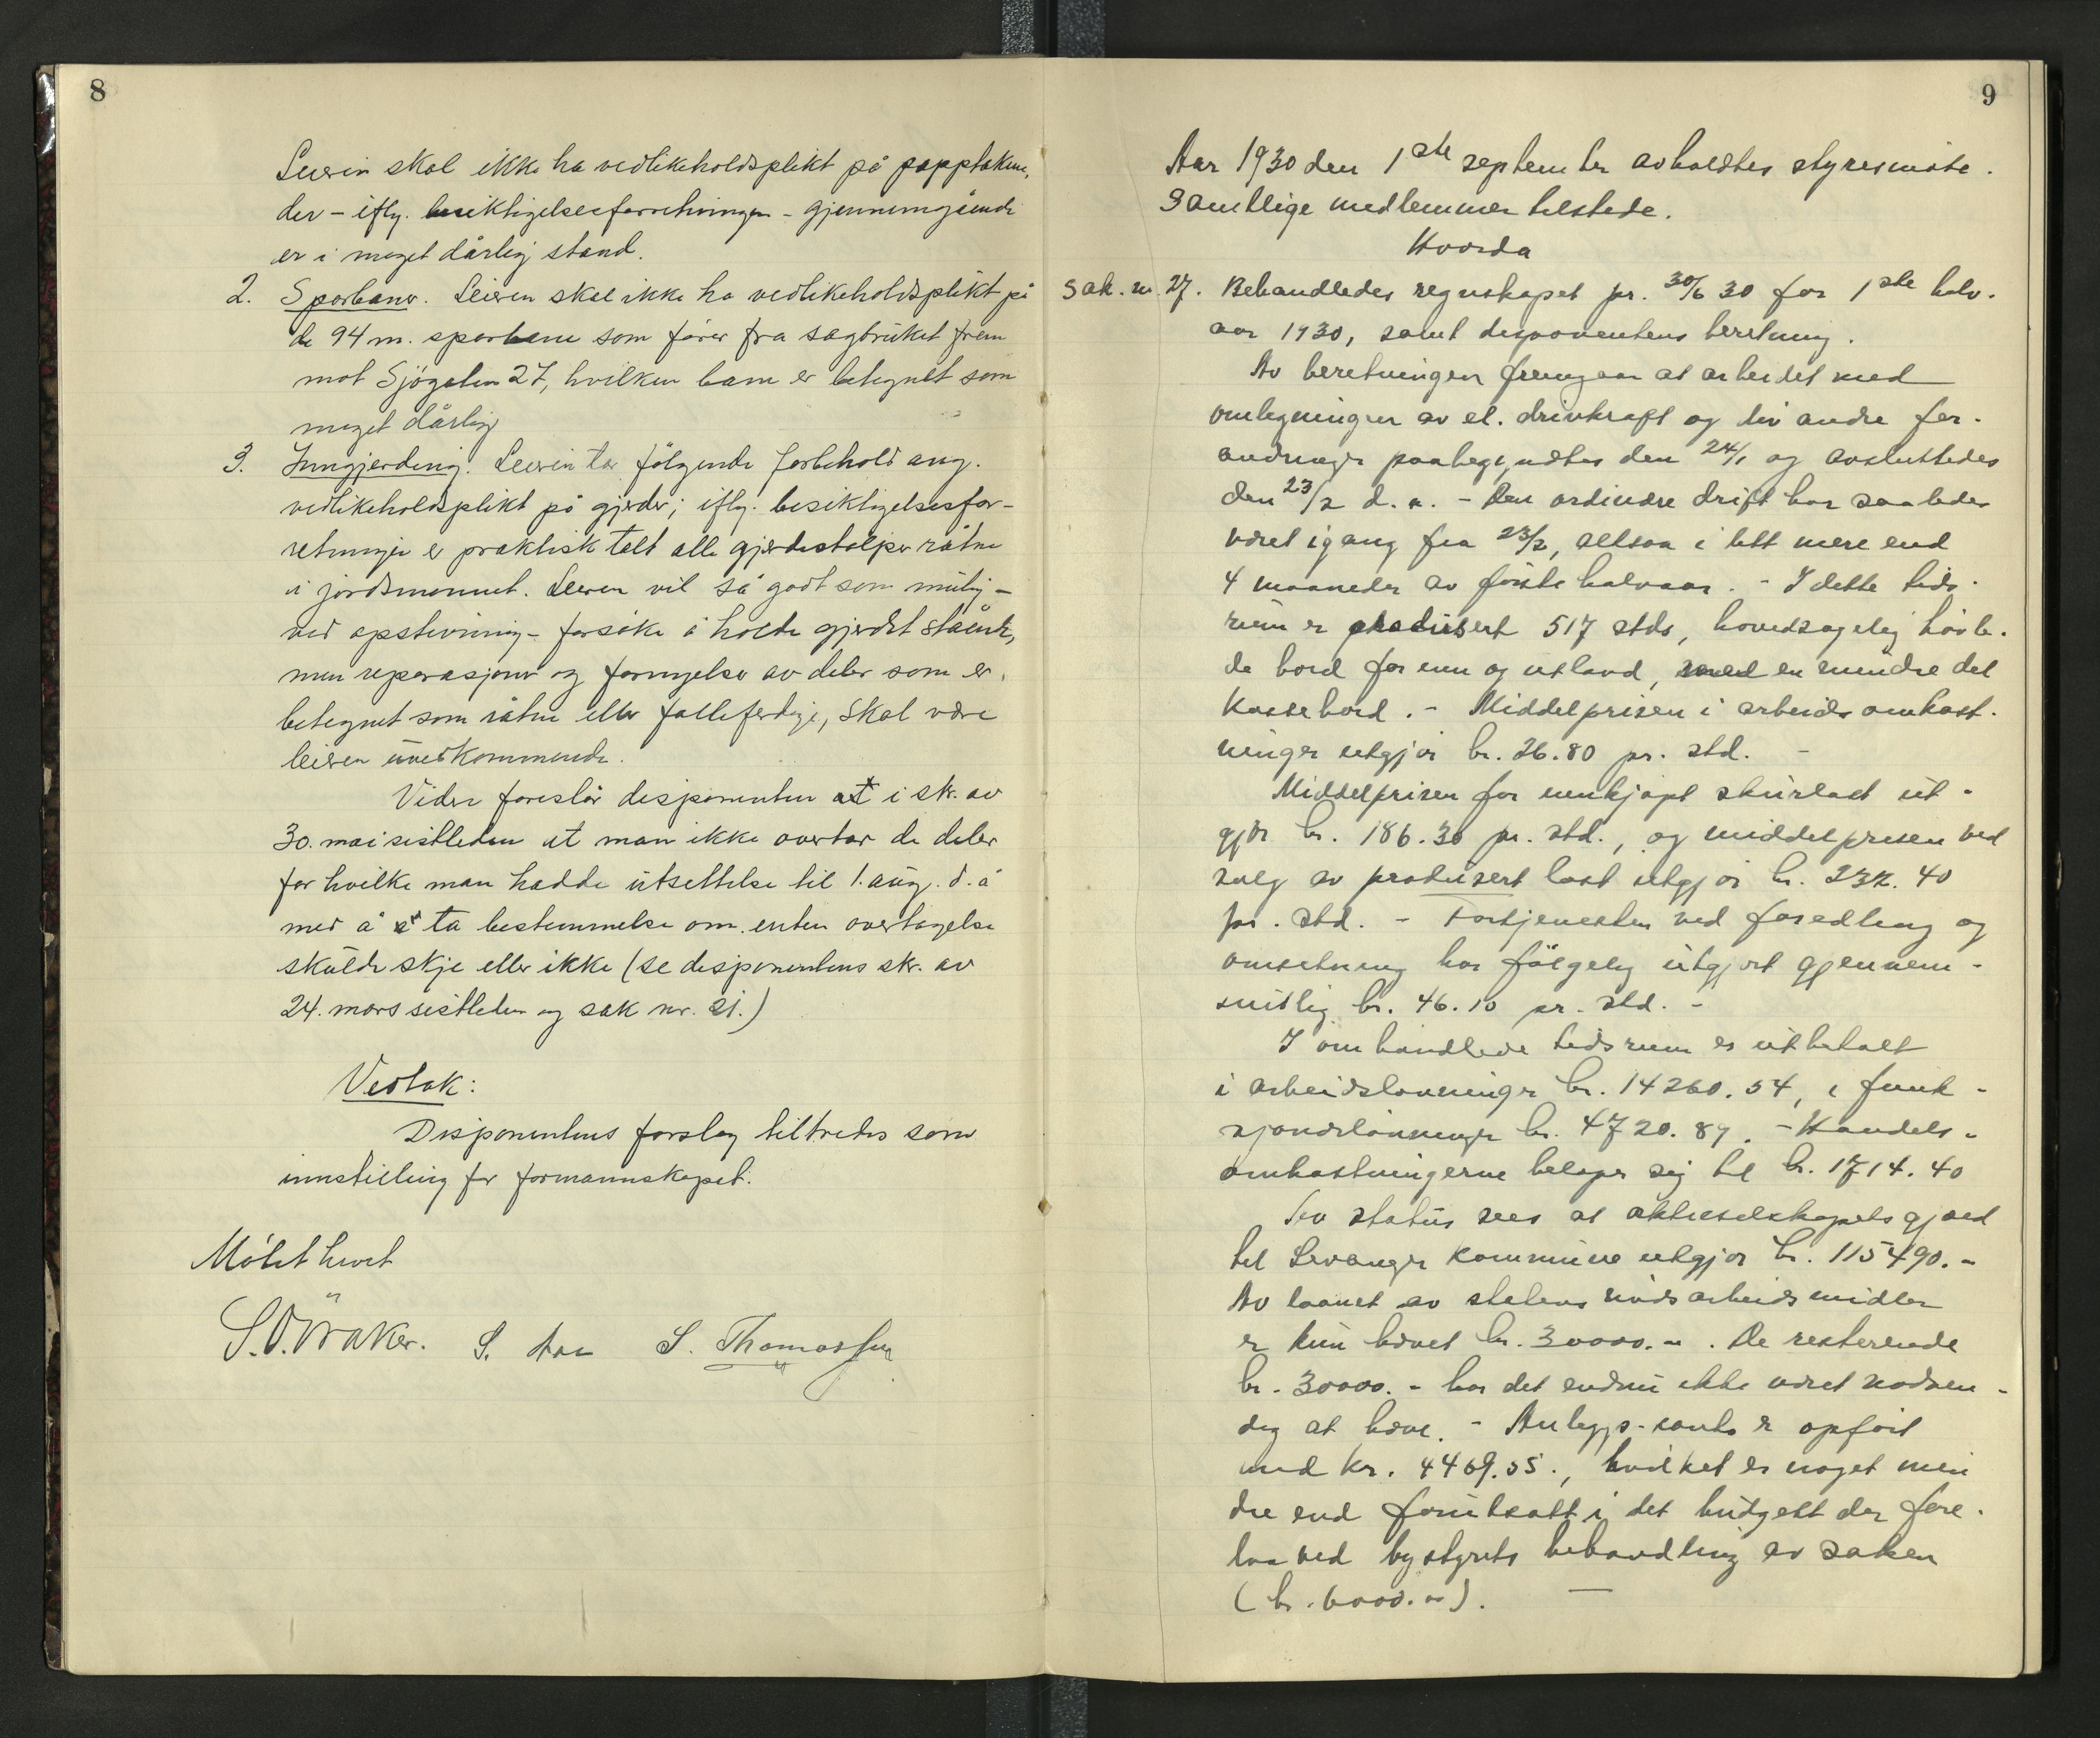 8
Leieren skal ikke ha vedlikeholdsplikt på papptakene,
der - iflg. besiktigelsesforretningen - gjennemgående
er i meget dårlig stand.
2. Sporbaner. Leieren skal ikke ha vedlikeholdsplikt på
de 94 m. sporbane som fører fra sagbruket frem
mot Sjøgaten 27, hvilken bane er betegnet som
meget dårlig
3. Inngjerding. Leieren tar følgende forbehold ang.
vedlikeholdsplikt på gjerder; iflg. besiktigelsesfor-
retningen er praktisk talt alle gjerdestolper råtne
i jordsmonnet. Leieren vil så godt som mulig -
ved opstivning - forsøke å holde gjerdet stående,
men reparasjoner og fornyelser av deler som er
betegnet som råtne eller falleferdige, skal være
leieren uvedkommende.
Videre foreslår disponenten at i skr. av
30. mai sistleden at man ikke overtar de deler
for hvilke man hadde utsettelse til 1. aug. d. å
med å ta bestemmelse om enten overtagelse
skulde skje eller ikke (se disponentens skr. av
24. mars sistleden og sak nr. 21.)
Vedtak:
Disponentens forslag tiltredes som
innstilling for formannskapet.
Møtet hevet
S. Thomassen
9
Aar 1930 den 1ste september avholdtes styresmøte.
Samtlige medlemmer tilstede.
Hvorda
Sak. nr. 27. Behandledes regnskapet pr. 30/6 30 for 1ste halv-
aar 1930, samt disponentens beretning.
Av beretningen fremgaar at arbeidet med
omlegningen av el. drivkraft og div andre for-
andringer paabegyndtes den 24/1 og avsluttedes
den 23/2 d. a. - Den ordinære drift har saaledes
været igang fra 23/2, altsaa i litt mere end
4 maaneder av første halvaar. - I dette tids-
rum er produsert 517 stds, hovedsagelig høvle-
de bord for inn og utland, med en mindre del
kassebord. - Middelprisen i arbeidsomkost-
ninger utgjør kr. 26.80 pr. std. -
Middelprisen for innkjøpt skurlast ut-
gjør kr. 186.30 pr. std., og middelprisen ved
salg av produsert last utgjør kr. 232.40
pr. std. - Fortjenesten ved foredling og
omsetning har følgelig utgjort gjennem-
snitlig kr. 46.10 pr. std. -
I omhandlede tidsrum er utbetalt
i arbeidslønninger kr. 14260.54, i funk-
sjonærlønninger kr. 4720.89. - Handels-
omkostningerne beløper sig til kr. 1714.40
Av status sees at aktieselskapets gjæld
til Levanger kommune utgjør kr. 115490.-
Av laanet av statens nødsarbeidsmidler
er kun hævet kr. 30000.- . De resterende
kr. 30000.- har det endnu ikke været nødven-
dig at hæve. - Anleggs-conto er opført
med kr. 4469.55., hvilket er noget min
dre end forutsatt i det budgett der fore-
laa ved bystyrets behandling av saken
(kr. 6000.-). -